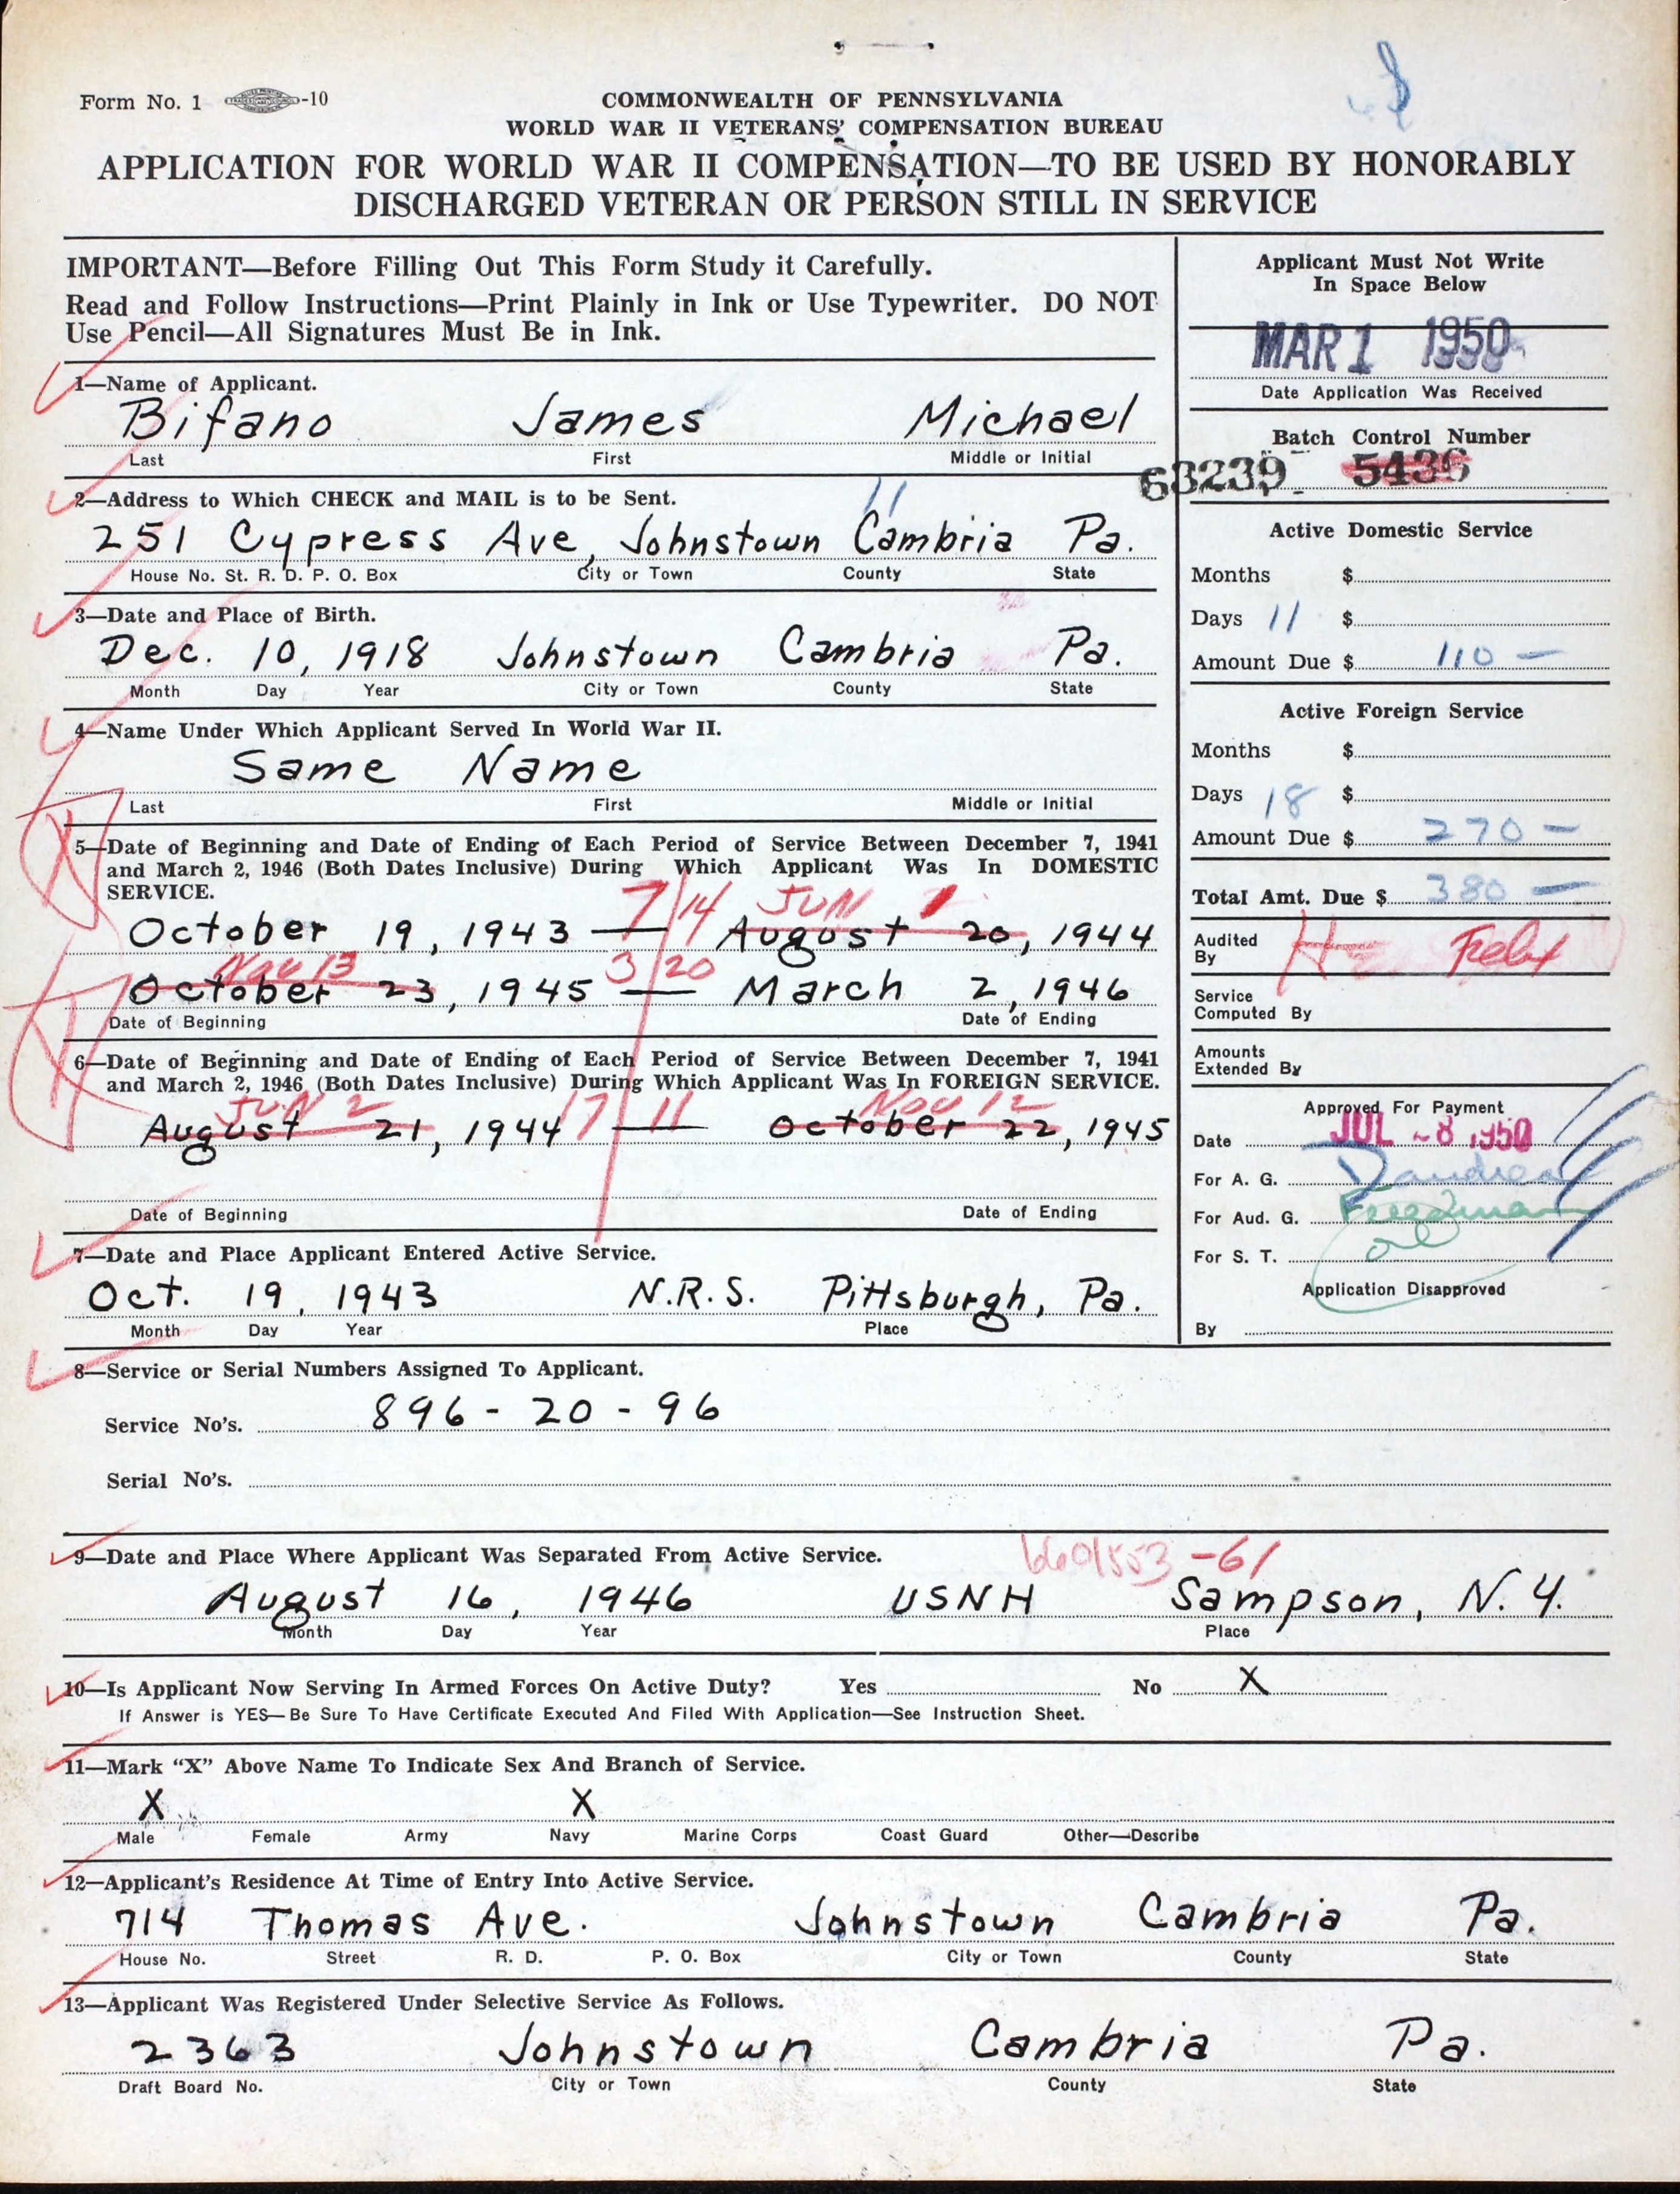 Form No. 1 -10
COMMONWEALTH OF PENNSYLVANIA
WORLD WAR II VETERANS' COMPENSATION BUREAU
APPLICATION FOR WORLD WAR II COMPENSATION—TO BE USED BY HONORABLY
DISCHARGED VETERAN OR PERSON STILL IN SERVICE
IMPORTANT—Before Filling Out This Form Study it Carefully.
Read and Follow Instructions—Print Plainly in Ink or Use Typewriter. DO NOT
Use Pencil—All Signatures Must Be in Ink.
1—Name of Applicant.
Bifano James Michael
Last First Middle or Initial
2—Address to Which CHECK and MAIL is to be Sent.
11
251 Cypress Ave, Johnstown Cambria Pa.
House No. St. R. D. P. O. Box City or Town County State
3—Date and Place of Birth.
Dec. 10, 1918 Johnstown Cambria Pa.
Month Day Year City or Town County State
4—Name Under Which Applicant Served In World War II.
Same Name
Last First Middle or Initial
5—Date of Beginning and Date of Ending of Each Period of Service Between December 7, 1941
and March 2, 1946 (Both Dates Inclusive) During Which Applicant Was In DOMESTIC
SERVICE.
7/14 JUN 1
October 19, 1943 — August 20, 1944
Nov 13 3/20
October 23, 1945 — March 2, 1946
Date of Beginning Date of Ending
6—Date of Beginning and Date of Ending of Each Period of Service Between December 7, 1941
and March 2, 1946 (Both Dates Inclusive) During Which Applicant Was In FOREIGN SERVICE.
JUN 2 17/11 Nov 12
August 21, 1944 — October 22, 1945
Date of Beginning Date of Ending
7—Date and Place Applicant Entered Active Service.
Oct. 19, 1943 N.R.S. Pittsburgh, Pa.
Month Day Year Place
Applicant Must Not Write
In Space Below
MAR 1 1950
Date Application Was Received
Batch Control Number
63239 5436
Active Domestic Service
Months $
Days 11 $
Amount Due $ 110 —
Active Foreign Service
Months $
Days 18 $
Amount Due $ 270 —
Total Amt. Due $ 380 —
Audited
By
Service
Computed By
Amounts
Extended By
Approved For Payment
Date JUL -8 1950
For A. G.
For Aud. G. Freedman
For S. T.
Application Disapproved
By
8—Service or Serial Numbers Assigned To Applicant.
Service No's. 896-20-96
Serial No's.
9—Date and Place Where Applicant Was Separated From Active Service.
6601553-61
August 16, 1946 USNH Sampson, N.Y.
Month Day Year Place
10—Is Applicant Now Serving In Armed Forces On Active Duty? Yes No X
If Answer is YES—Be Sure To Have Certificate Executed And Filed With Application—See Instruction Sheet.
11—Mark "X" Above Name To Indicate Sex And Branch of Service.
X X
Male Female Army Navy Marine Corps Coast Guard Other—Describe
12—Applicant's Residence At Time of Entry Into Active Service.
714 Thomas Ave. Johnstown Cambria Pa.
House No. Street R. D. P. O. Box City or Town County State
13—Applicant Was Registered Under Selective Service As Follows.
2363 Johnstown Cambria Pa.
Draft Board No. City or Town County State